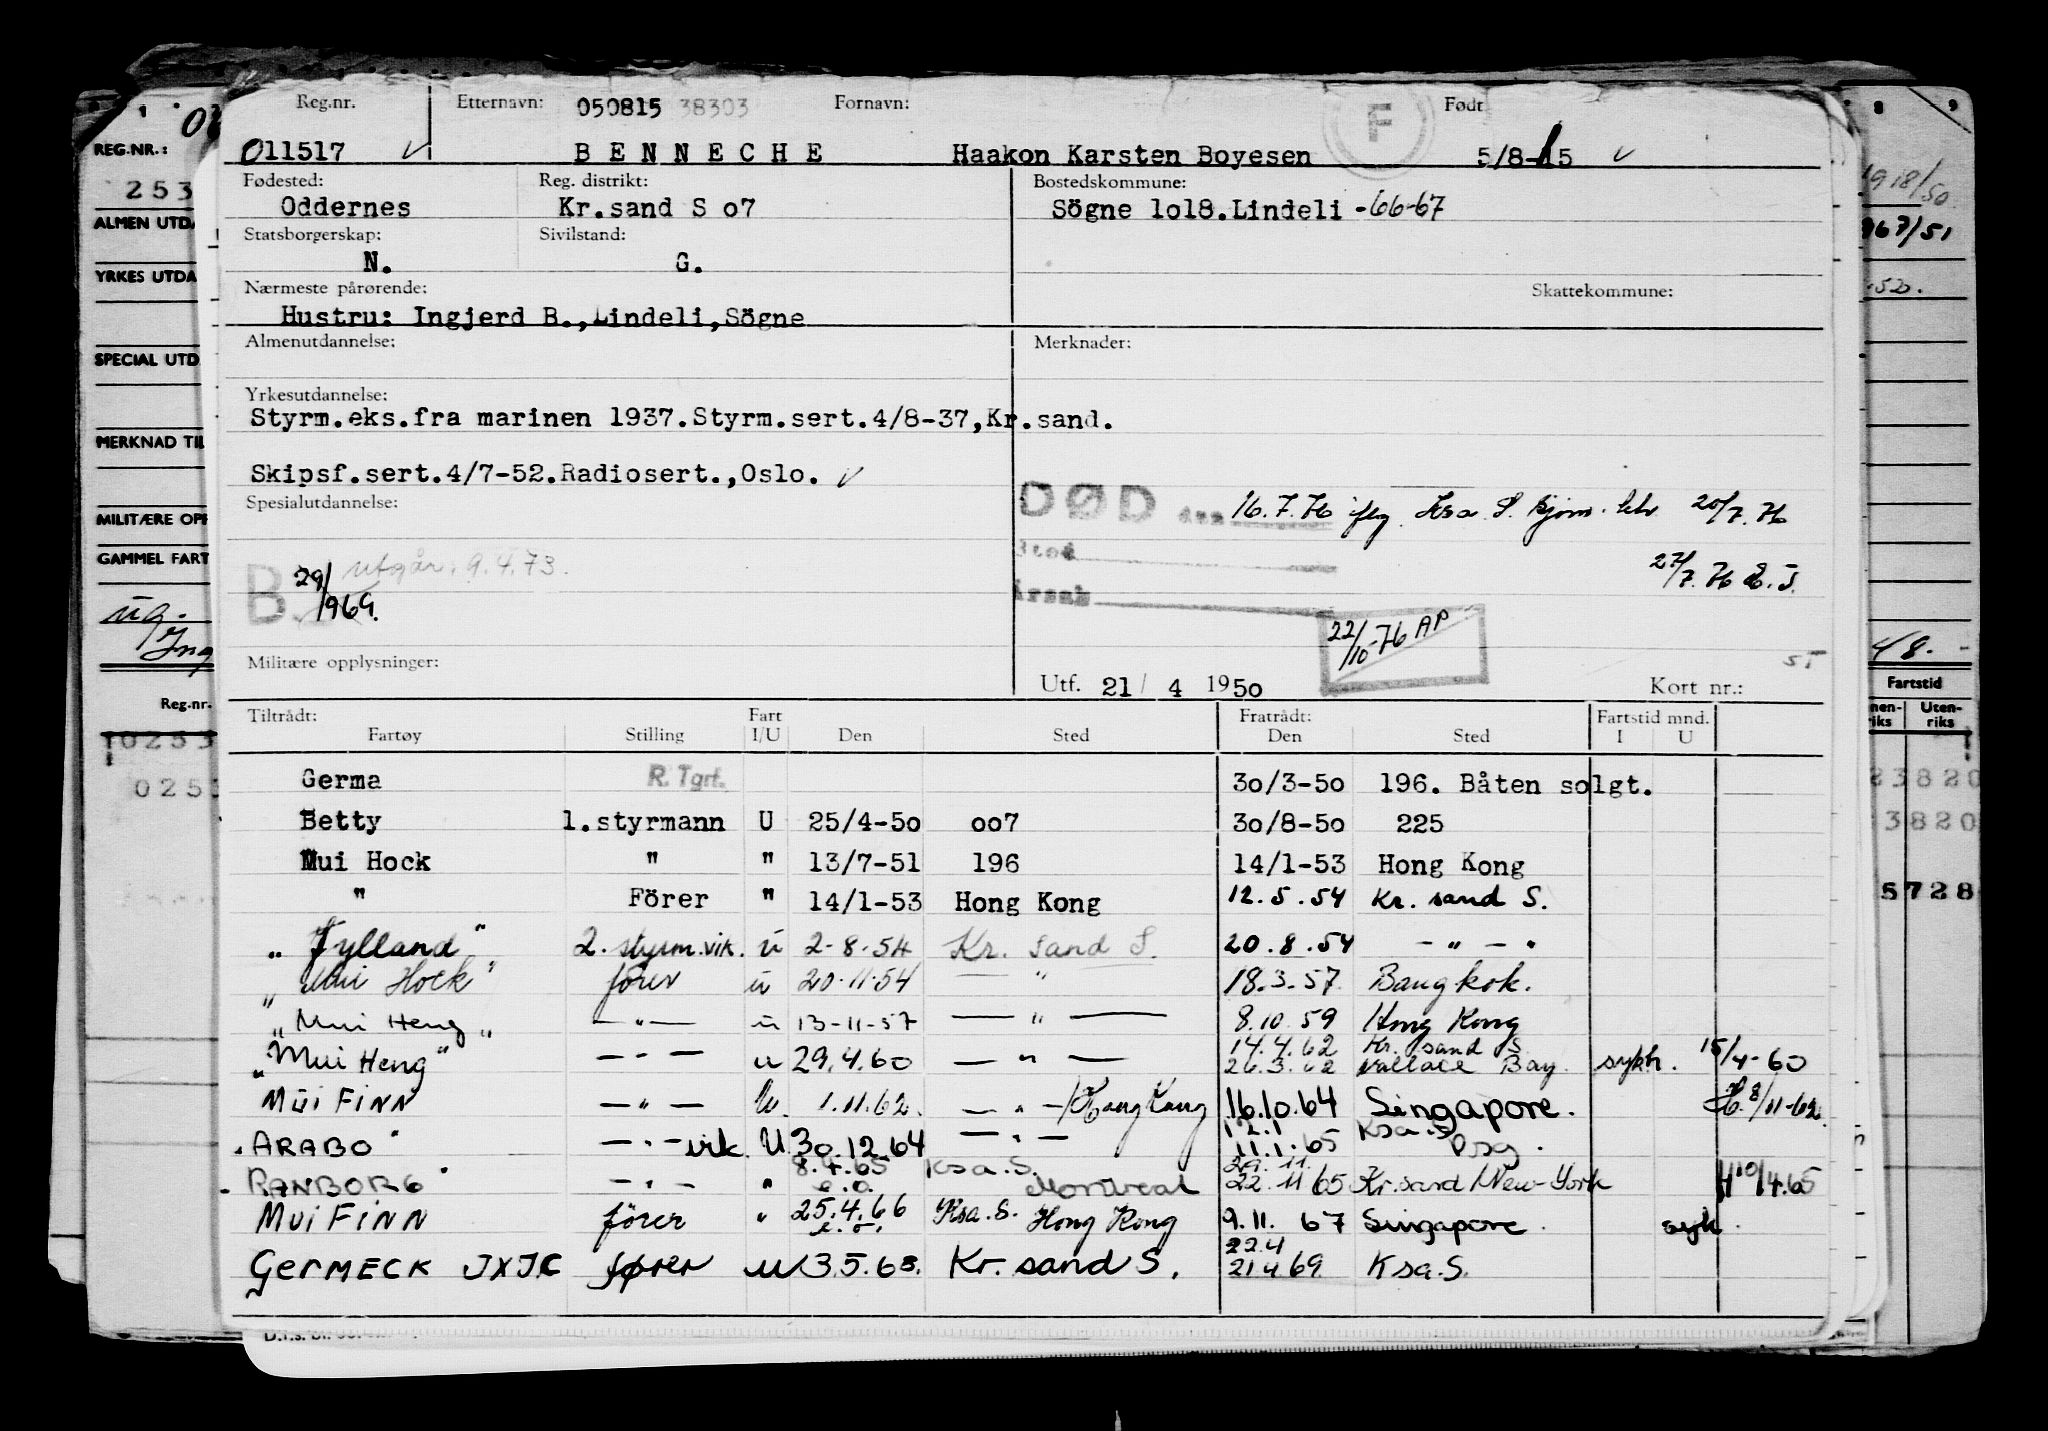 Reg.nr. Etternavn: 050815 38303 Fornavn: F Født
011517 BENNECHE Haakon Karsten Boyesen 5/8-15
Fødested: Reg. distrikt: Bostedskommune:
Oddernes Kr.sand S o7 Sögne 1o18.Lindeli -66-67
Statsborgerskap: Sivilstand:
N. G.
Nærmeste pårørende: Skattekommune:
Hustru: Ingjerd B.,Lindeli,Sögne
Almenutdannelse: Merknader:
Yrkesutdannelse:
Styrm.eks.fra marinen 1937.Styrm.sert.4/8-37,Kr.sand.
Skipsf.sert.4/7-52.Radiosert.,Oslo.
Spesialutdannelse:
DØD den 16.7.76 iflg. Ksa S. 20/7.76
Sted
utgår. 9.4.73.
27/7.76
B 29/1969.
Årsak
22/10-76 AP
Militære opplysninger:
Utf. 21/ 4 1950 Kort nr.:
Tiltrådt: Fart Fratrådt: Fartstid mnd.
Fartøy Stilling I/U Den Sted Den Sted I U
Germa R.Tgrf. 3o/3-5o 196. Båten solgt.
Betty 1.styrmann U 25/4-5o oo7 3o/8-5o 225
Mui Hock " " 13/7-51 196 14/1-53 Hong Kong
" Förer " 14/1-53 Hong Kong 12.5.54 Kr. sand S.
"Jylland" 2. styrm.vik. u 2-8-54 Kr. sand S. 20.8.54 — " — "
"Mui Hock" fører u 20-11-54 — " 18.3.57 Bangkok.
"Mui Heng" — " — u 13-11-57 — " — 8.10.59 Hong Kong
14.4.62 Kr. sand S.
"Mui Heng" — " — u 29.4.60 — " — 26.3.62 Wallace Bay. sykh. 15/4-60
MUI FINN — " — U. 1.11.62. — " — /Hong Kong 16.10.64 Singapore. H. 8/11-62.
12.1 Ksa. S
"ARABO" — " — vik. U 30.12.64 — " — 11.1.65 Psg.
8.4.65 Ksa. S. 29.11.
"RANBORG" — " — " e.o. Montreal 22.11 65 Kr.sand/New-York H 10/4.65
MUI FINN förer " 25.4.66 e.o. Ksa. S. Hong Kong 9.11. 67 Singapore. syk.
22.4
GERMECK JXJC fører u 3.5.68. Kr. sand S. 21.4.69. Ksa. S.
REG.NR.:
253
ALMEN UTDA
YRKES UTDA
SPECIAL UTD.
MERKNAD TIL
MILITÆRE OPP
GAMMEL FART
ug.
Ing
Reg.nr.
0253
025
8 9
1918/50
967/51
48. -
Fartstid
Innen-riks Uten-riks
23820
3820
5728